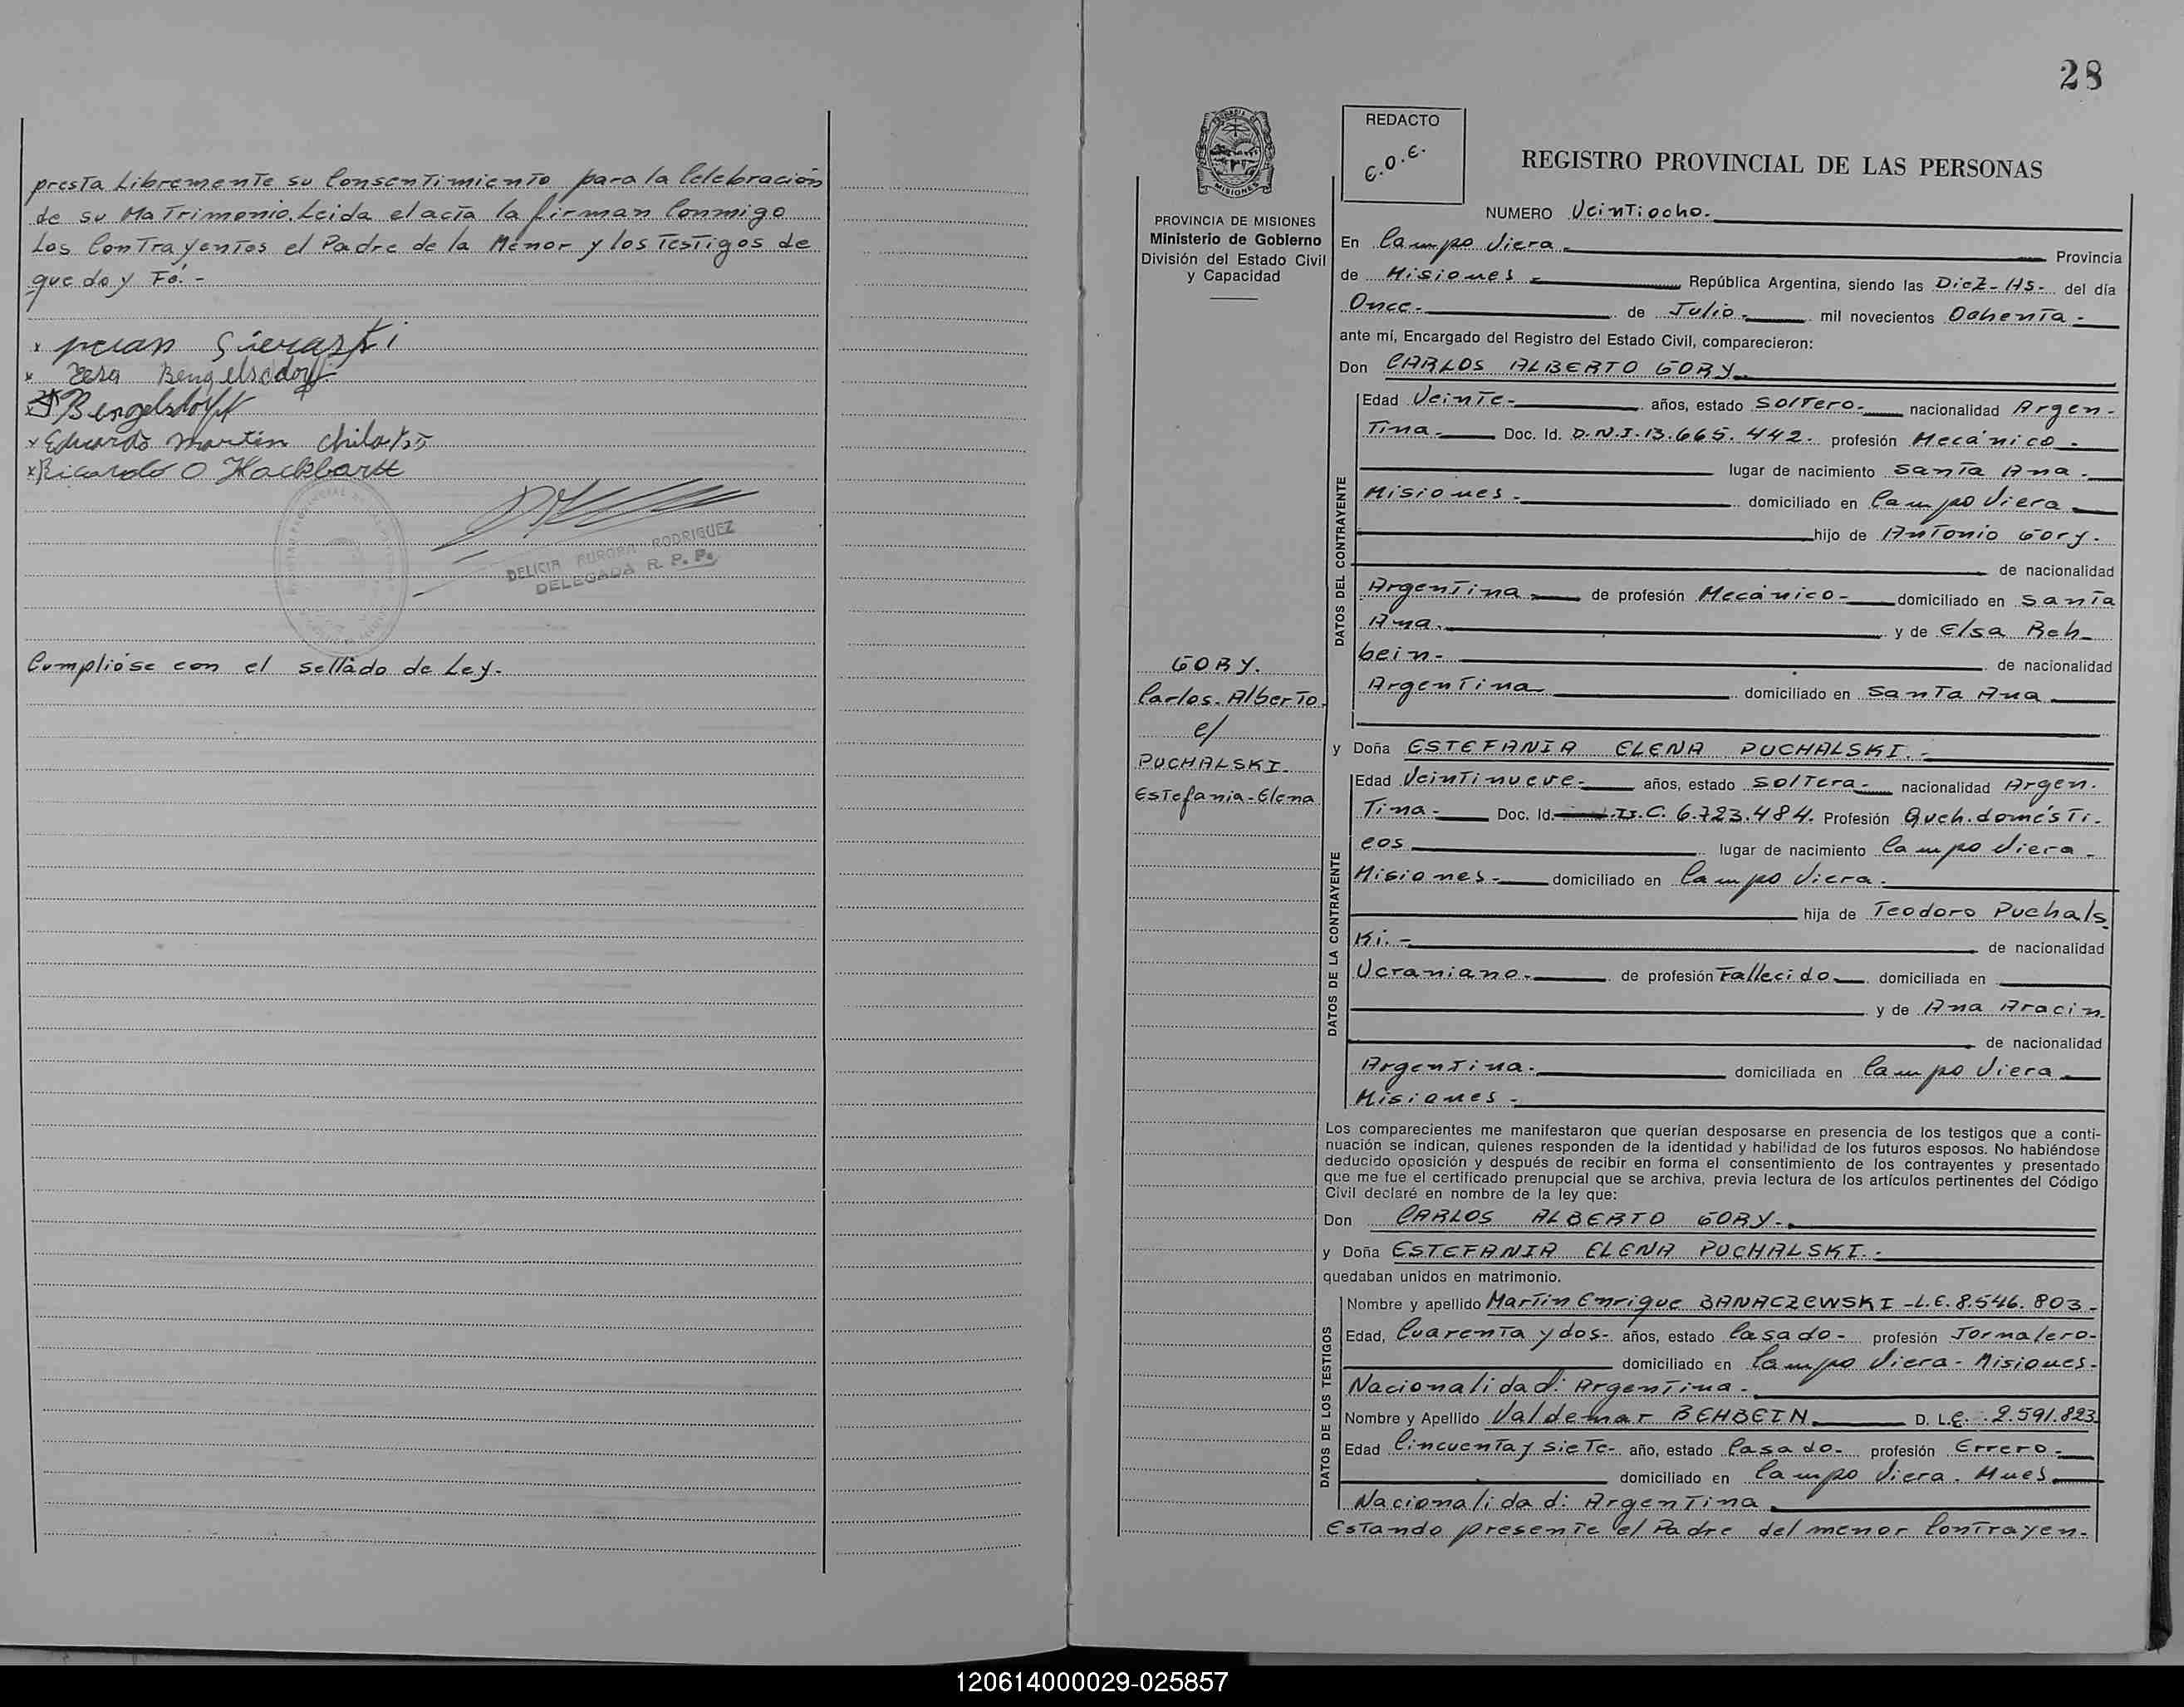 presta Libremente su Consentimiento para la Celebración
de su Matrimonio. Leida el acta la firman Conmigo
Los Contrayentes el Padre de la Menor y los Testigos de
que doy Fé.-
x
x Rosa Bengelsdorff
x Bengelsdorff
x Eduardo Martin
x Ricardo O Hackbartt
DELICIA AURORA RODRIGUEZ
DELEGADA R. P. P.
Cumplióse con el sellado de Ley.-
28
PROVINCIA DE MISIONES
Ministerio de Gobierno
División del Estado Civil
y Capacidad
GORY.
Carlos-Alberto
c/
PUCHALSKI-
Estefania-Elena
REDACTO
C.O.E.
REGISTRO PROVINCIAL DE LAS PERSONAS
NUMERO Veintiocho.-
En Campo Viera.- Provincia
de Misiones.- República Argentina, siendo las Diez-Hs- del día
Once.- de Julio.- mil novecientos Ochenta.-
ante mí, Encargado del Registro del Estado Civil, comparecieron:
Don CARLOS ALBERTO GORY.-
DATOS DEL CONTRAYENTE
Edad Veinte.- años, estado Soltero.- nacionalidad Argen-
Tina.- Doc. Id. D.N.I. 13.665.442.- profesión Mecánico.-
lugar de nacimiento Santa Ana.-
Misiones.- domiciliado en Campo Viera
hijo de Antonio Gory.-
de nacionalidad
Argentina de profesión Mecánico.- domiciliado en Santa
Ana.- y de Elsa Reh-
bein.- de nacionalidad
Argentina domiciliado en Santa Ana
y Doña ESTEFANIA ELENA PUCHALSKI.-
DATOS DE LA CONTRAYENTE
Edad Veintinueve.- años, estado Soltera.- nacionalidad Argen-
Tina.- Doc. Id. L.C. 6.723.484.- Profesión Queh. domésti-
cos lugar de nacimiento Campo Viera.-
Misiones.- domiciliado en Campo Viera.-
hija de Teodoro Puchals
Ki.- de nacionalidad
Ucraniano.- de profesión Fallecido domiciliada en
y de Ana Aracin.
de nacionalidad
Argentina.- domiciliada en Campo Viera
Misiones.-
Los comparecientes me manifestaron que querían desposarse en presencia de los testigos que a conti-
nuación se indican, quienes responden de la identidad y habilidad de los futuros esposos. No habiéndose
deducido oposición y después de recibir en forma el consentimiento de los contrayentes y presentado
que me fue el certificado prenupcial que se archiva, previa lectura de los artículos pertinentes del Código
Civil declaré en nombre de la ley que:
Don CARLOS ALBERTO GORY.-
y Doña ESTEFANIA ELENA PUCHALSKI.-
quedaban unidos en matrimonio.
DATOS DE LOS TESTIGOS
Nombre y apellido Martin Enrique BANACZEWSKI - L.E. 8.546.803-
Edad, Cuarenta y dos- años, estado Casado- profesión Jornalero-
domiciliado en Campo Viera - Misiones-
Nacionalidad: Argentina.-
Nombre y Apellido Valdemar REHBEIN D. L.E. 2.591.823
Edad Cincuenta y Siete- año, estado Casado- profesión Errero-
domiciliado en Campo Viera. Mnes
Nacionalidad: Argentina
Estando presente el Padre del menor Contrayen-
120614000029-025857